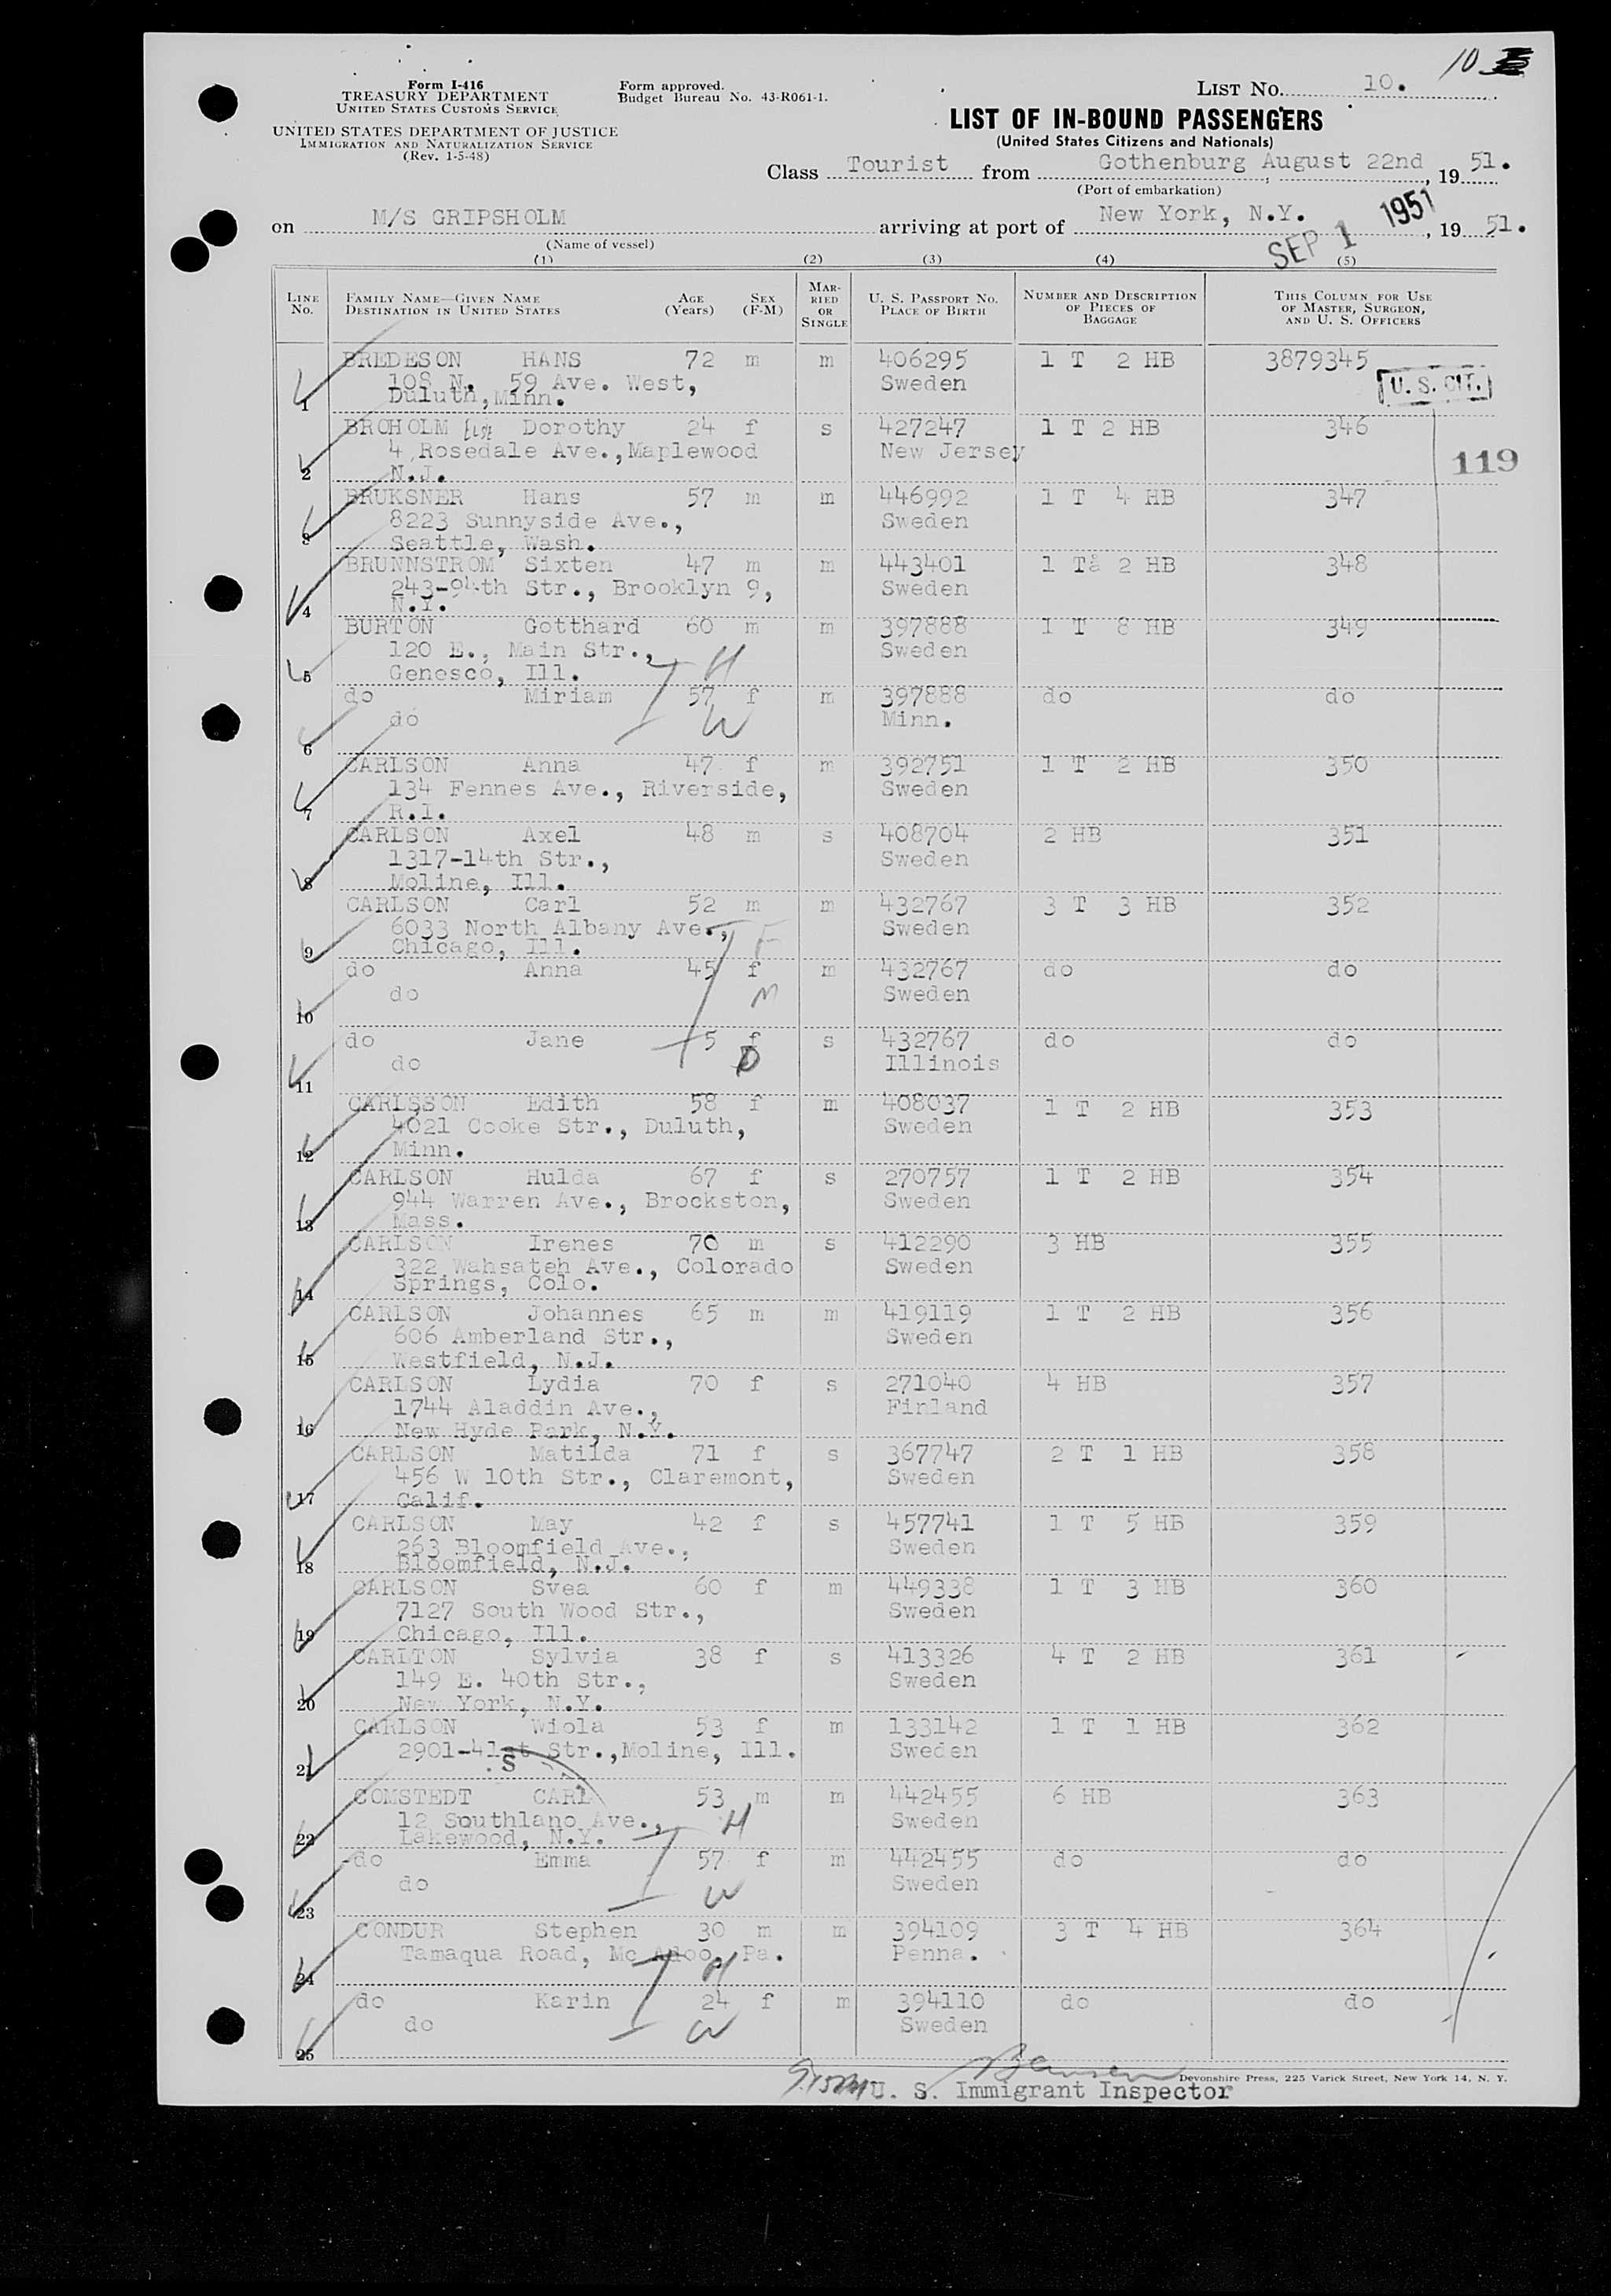 10
Form I-416
TREASURY DEPARTMENT
UNITED STATES CUSTOMS SERVICE
UNITED STATES DEPARTMENT OF JUSTICE
IMMIGRATION AND NATURALIZATION SERVICE
(Rev. 1-5-48)
Form approved.
Budget Bureau No. 43-R061-1.
LIST NO. 10.
LIST OF IN-BOUND PASSENGERS
(United States Citizens and Nationals)
Class Tourist from Gothenburg August 22nd, 19 51.
(Port of embarkation)
on M/S GRIPSHOLM arriving at port of New York, N.Y. SEP 1 1951, 19 51.
(Name of vessel)
(1) (2) (3) (4) (5)
LINE No. FAMILY NAME—GIVEN NAME DESTINATION IN UNITED STATES AGE (Years) SEX (F-M) MARRIED OR SINGLE U. S. PASSPORT NO. PLACE OF BIRTH NUMBER AND DESCRIPTION OF PIECES OF BAGGAGE THIS COLUMN FOR USE OF MASTER, SURGEON, AND U. S. OFFICERS
BREDESON HANS 72 m m 406295 1 T 2 HB 3879345
108 N. 59 Ave. West, Sweden U. S. CIT.
1 Duluth, Minn.
BROHOLM Else Dorothy 24 f s 427247 1 T 2 HB 346
4 Rosedale Ave., Maplewood New Jersey 119
2 N.J.
BRUKSNER Hans 57 m m 446992 1 T 4 HB 347
8223 Sunnyside Ave., Sweden
3 Seattle, Wash.
BRUNNSTROM Sixten 47 m m 443401 1 Tå 2 HB 348
243-94th Str., Brooklyn 9, Sweden
4 N.Y.
BURTON Gotthard 60 m m 397888 1 T 8 HB 349
120 E., Main Str., H Sweden
5 Genesco, Ill.
do Miriam 57 f m 397888 do do
do W Minn.
6
CARLSON Anna 47 f m 392751 1 T 2 HB 350
134 Fennes Ave., Riverside, Sweden
7 R.I.
CARLSON Axel 48 m s 408704 2 HB 351
1317-14th Str., Sweden
8 Moline, Ill.
CARLSON Carl 52 m m 432767 3 T 3 HB 352
6033 North Albany Ave., F Sweden
9 Chicago, Ill.
do Anna 45 f m 432767 do do
do M Sweden
10
do Jane 5 f s 432767 do do
do D Illinois
11
CARLSSON Edith 58 f m 408037 1 T 2 HB 353
4021 Cooke Str., Duluth, Sweden
12 Minn.
CARLSON Hulda 67 f s 270757 1 T 2 HB 354
944 Warren Ave., Brockston, Sweden
13 Mass.
CARLSON Irenes 70 m s 412290 3 HB 355
322 Wahsateh Ave., Colorado Sweden
14 Springs, Colo.
CARLSON Johannes 65 m m 419119 1 T 2 HB 356
606 Amberland Str., Sweden
15 Westfield, N.J.
CARLSON Lydia 70 f s 271040 4 HB 357
1744 Aladdin Ave., Finland
16 New Hyde Park, N.Y.
CARLSON Matilda 71 f s 367747 2 T 1 HB 358
456 W 10th Str., Claremont, Sweden
17 Calif.
CARLSON May 42 f s 457741 1 T 5 HB 359
263 Bloomfield Ave., Sweden
18 Bloomfield, N.J.
CARLSON Svea 60 f m 449338 1 T 3 HB 360
7127 South Wood Str., Sweden
19 Chicago, Ill.
CARLTON Sylvia 38 f s 413326 4 T 2 HB 361
149 E. 40th Str., Sweden
20 New York, N.Y.
CARLSON Wiola 53 f m 133142 1 T 1 HB 362
2901-41st Str., Moline, Ill. Sweden
21 S
COMSTEDT CARL 53 m m 442455 6 HB 363
12 Southlano Ave., H Sweden
22 Lakewood, N.Y.
do Emma 57 f m 442455 do do
do W Sweden
23
CONDUR Stephen 30 m m 394109 3 T 4 HB 364
Tamaqua Road, Mc Adoo, Pa. H Penna.
24
do Karin 24 f m 394110 do do
do W Sweden
25
Devonshire Press, 225 Varick Street, New York 14, N. Y.
U. S. Immigrant Inspector